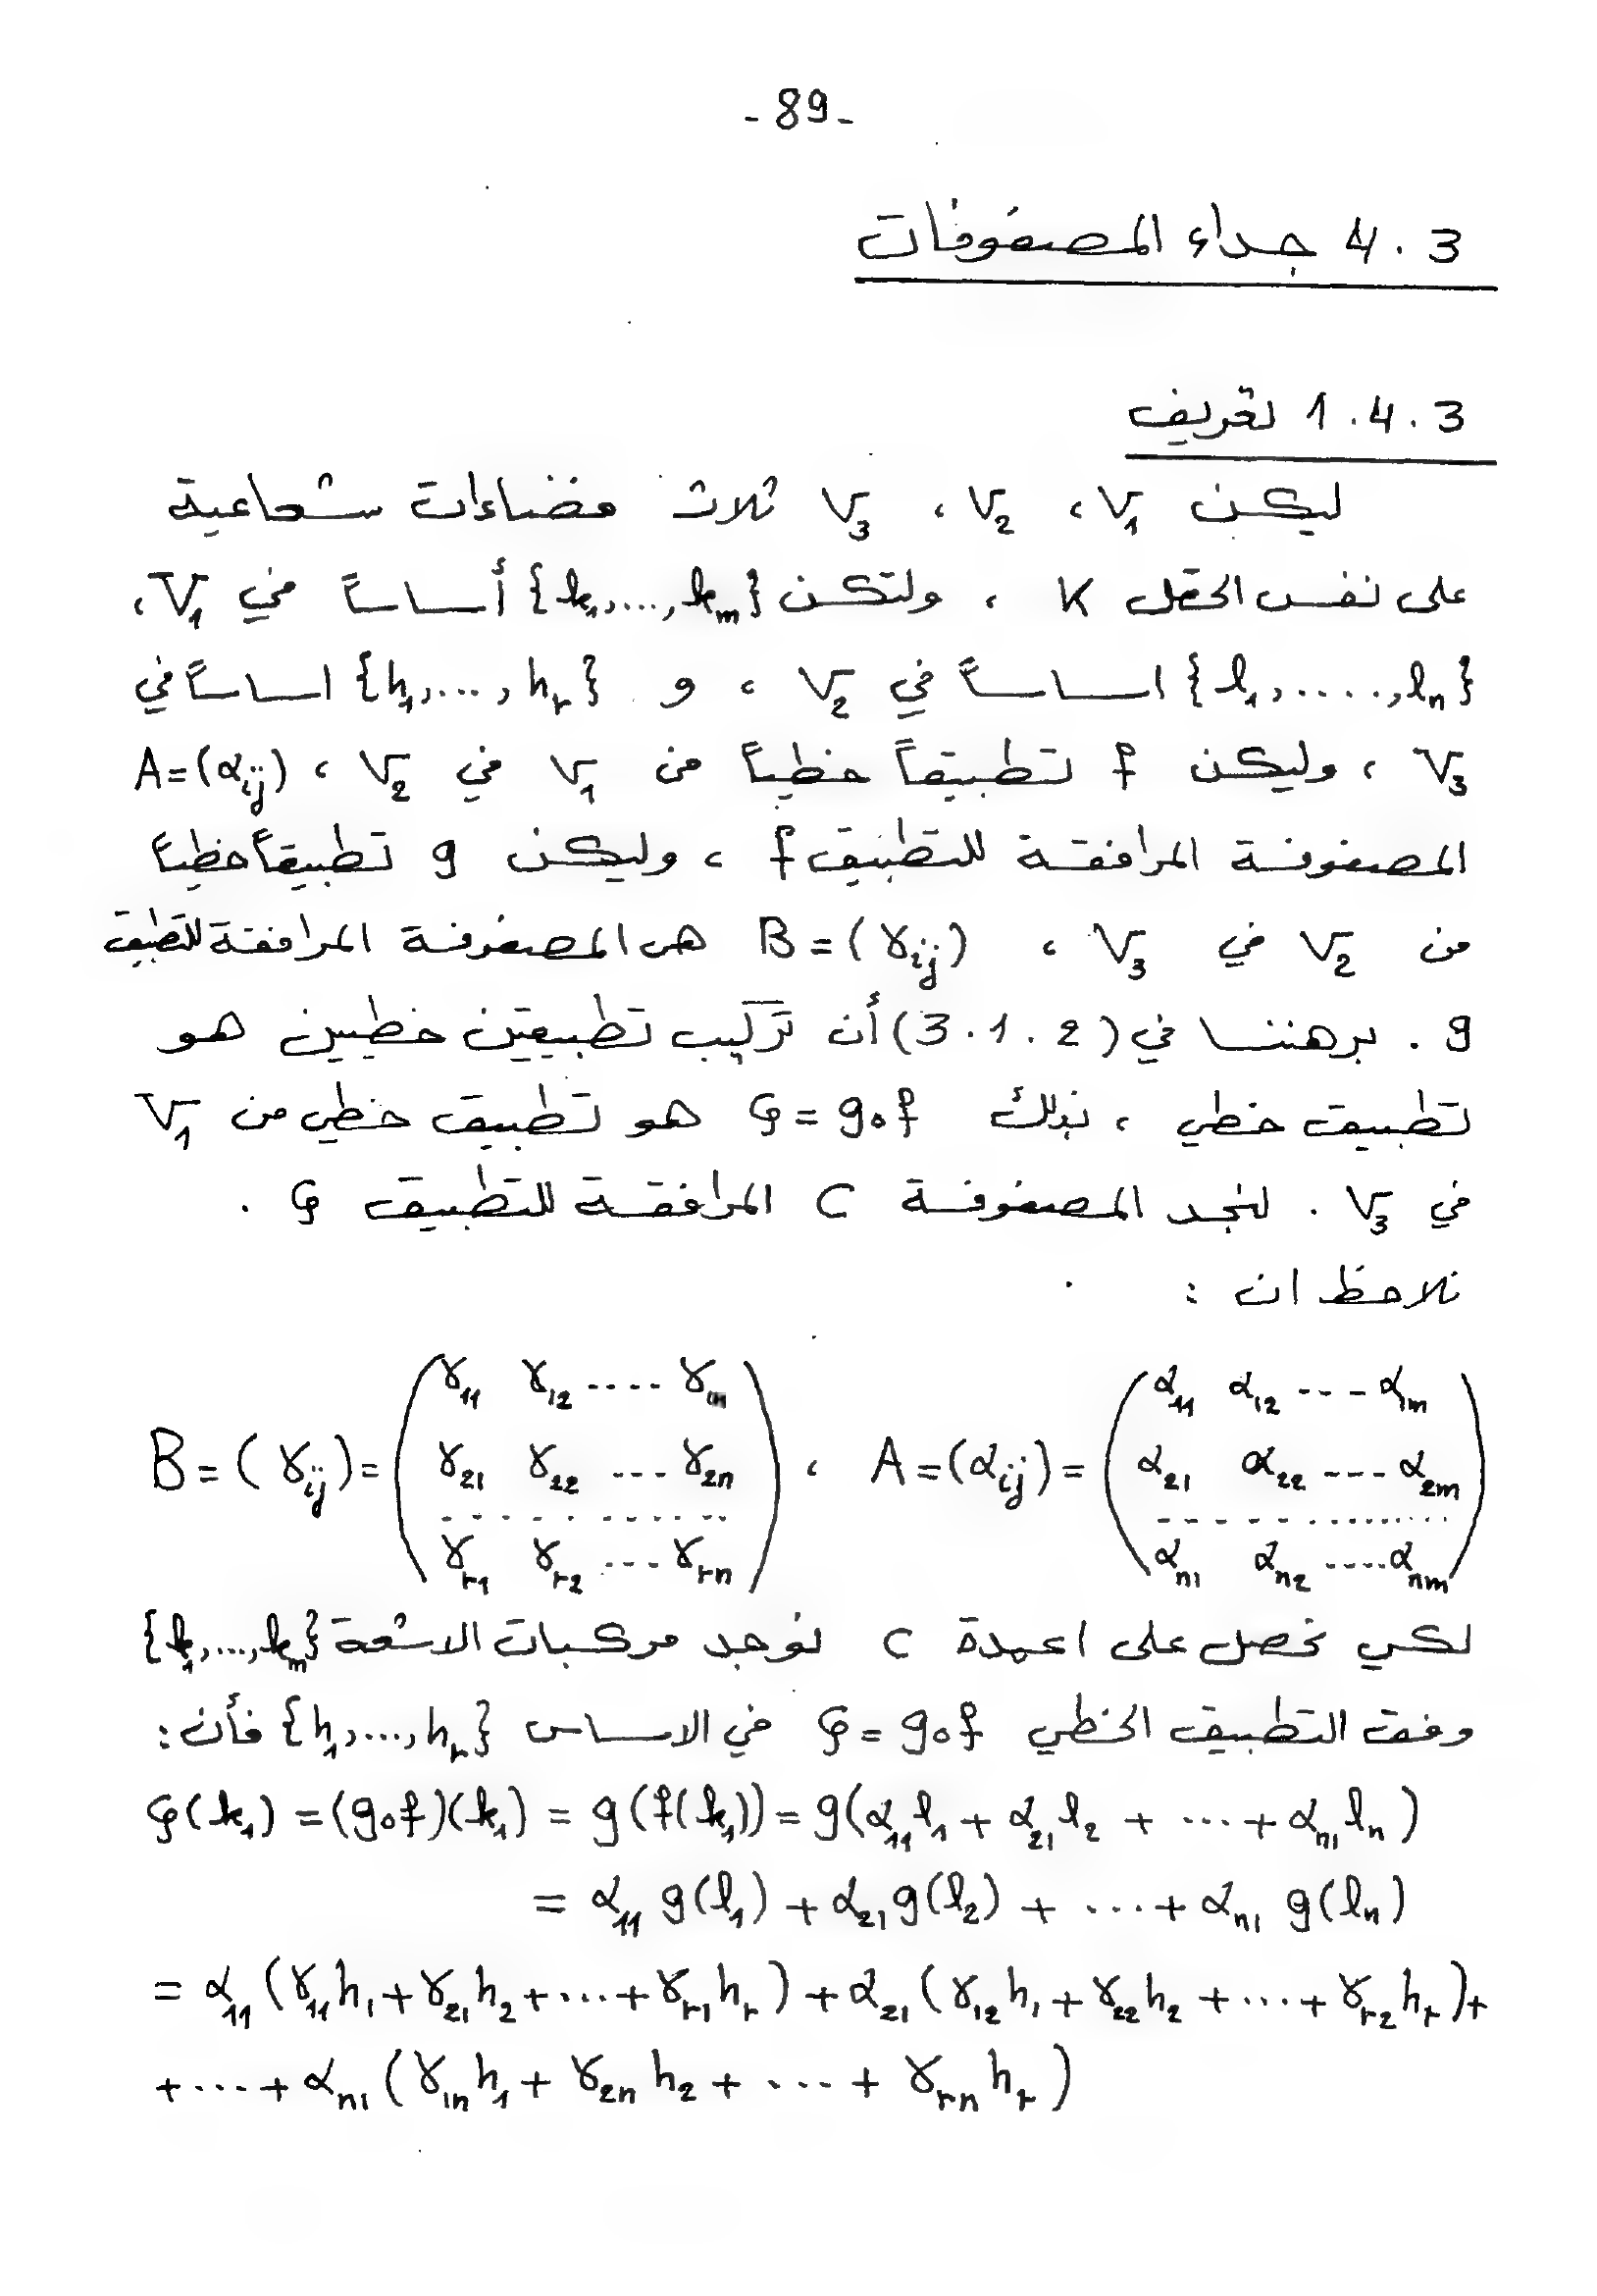 - 89 -
3 . 4 جداء المصفوفات
3 . 4 . 1 تعريف
ليكن V₁ ، V₂ ، V₃ ثلاث فضاءات شعاعية
على نفس الحقل K ، ولتكن {k₁,...,kₘ} أساساً في V₁ ،
{l₁,.....,lₙ} اساساً في V₂ ، و {h₁,...,hᵣ} اساساً في
V₃ ، وليكن f تطبيقاً خطياً من V₁ في V₂ ، A=(αᵢⱼ)
المصفوفة المرافقة للتطبيق f ، وليكن g تطبيقاً خطياً
من V₂ في V₃ ، B=(γᵢⱼ) هي المصفوفة المرافقة للتطبيق
g . برهننا في (3.1.2) أن تركيب تطبيقين خطيين هو
تطبيق خطي ، بذلك φ=g∘f هو تطبيق خطي من V₁
في V₃ . لنجد المصفوفة C المرافقة للتطبيق φ .
نلاحظ ان :
γ₁₁ γ₁₂ .... γ₁ₙ α₁₁ α₁₂ ---- α₁ₘ
B=(γᵢⱼ)= γ₂₁ γ₂₂ .... γ₂ₙ ، A=(αᵢⱼ)= α₂₁ α₂₂ ---- α₂ₘ
γᵣ₁ γᵣ₂ .... γᵣₙ αₙ₁ αₙ₂ .... αₙₘ
لكي نحصل على اعمدة C نوجد مركبات الاشعة {k₁,...,kₘ}
وفق التطبيق الخطي φ=g∘f في الاساس {h₁,...,hᵣ} فأن :
φ(k₁) = (g∘f)(k₁) = g(f(k₁)) = g(α₁₁l₁ + α₂₁l₂ + ... + αₙ₁lₙ)
= α₁₁ g(l₁) + α₂₁ g(l₂) + ... + αₙ₁ g(lₙ)
= α₁₁(γ₁₁h₁ + γ₂₁h₂ + ... + γᵣ₁hᵣ) + α₂₁(γ₁₂h₁ + γ₂₂h₂ + ... + γᵣ₂hᵣ) +
+ ... + αₙ₁(γ₁ₙh₁ + γ₂ₙh₂ + ... + γᵣₙhᵣ)